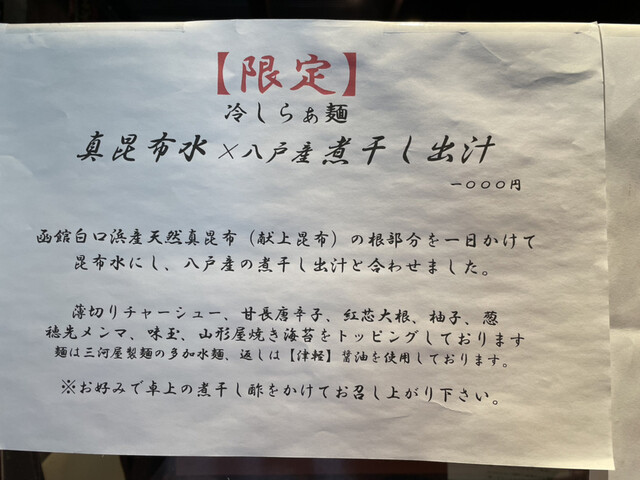 【限定】
冷しらぁ麺
真昆布水×八戸産煮干し出汁
一〇〇〇円
函館白口浜産天然真昆布（献上昆布）の根部分を一日かけて
昆布水にし、八戸産の煮干し出汁と合わせました。
薄切りチャーシュー、甘長唐辛子、紅芯大根、柚子、葱
穂先メンマ、味玉、山形屋焼き海苔をトッピングしております
麺は三河屋製麺の多加水麺、返しは【津軽】醤油を使用しております。
※お好みで卓上の煮干し酢をかけてお召し上がり下さい。